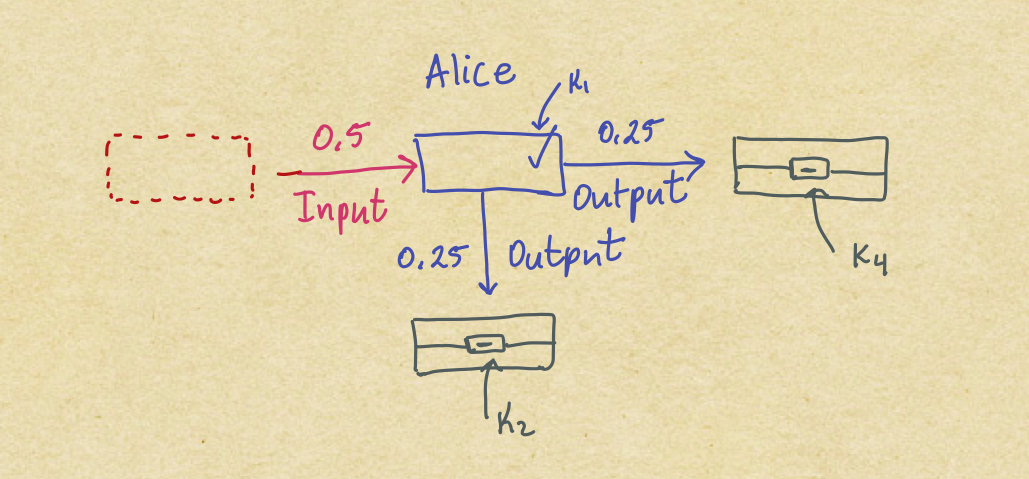 Alice
K1
0.5
0.25
Input
Output
0.25
Output
K4
K2